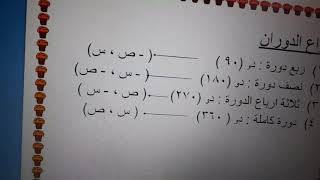 اع الدوران
١) ربع دورة : د و (٩٠) (- ص ، س)
٢) نصف دورة : د و (١٨٠) (- س ، - ص)
٣) ثلاثة ارباع الدورة : د و (٢٧٠) (ص ، - س)
٤) دورة كاملة : د و (٣٦٠) (س ، ص)